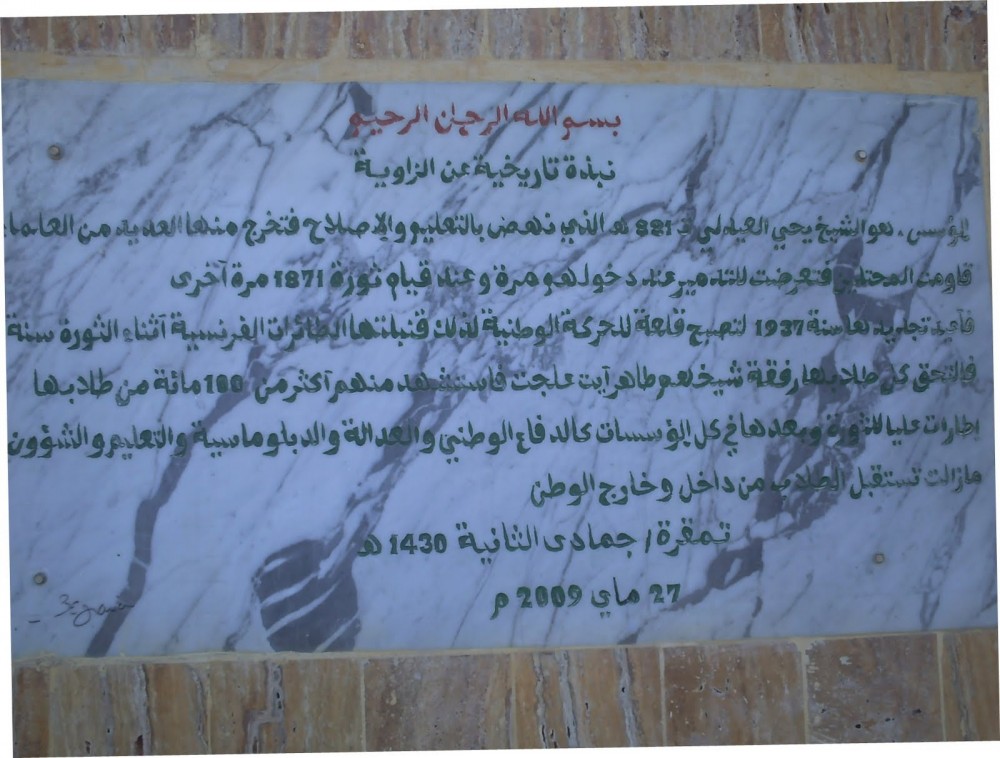 بسم الله الرحمان الرحيم
نبذة تاريخية عن الزاوية
المؤسس، هو الشيخ يحي العيدلي ت 881 هـ الذي نهض بالتعليم والإصلاح فتخرج منها العديد من العلماء
قاومت المحتلين فتعرضت للتدمير عند دخولهم مرة وعند قيام ثورة 1871 مرة آخرى
فآعيد تجديدها سنة 1937 لتصبح قلعة للحركة الوطنية لذلك قنبلتها الطائرات الفرنسية آثناء الثورة سنة
فالتحق كل طلابها رفقة شيخهم طاهر آيت علجت فاستشهد منهم آكثر من 100 مائة من طلابها
إطارات عليا للثورة وبعدها في كل المؤسسات كالدفاع الوطني والعدالة والدبلوماسية والتعليم والشؤون
مازالت تستقبل الطلاب من داخل وخارج الوطن
تمقرة / جمادى الثانية 1430 هـ
27 ماي 2009 م